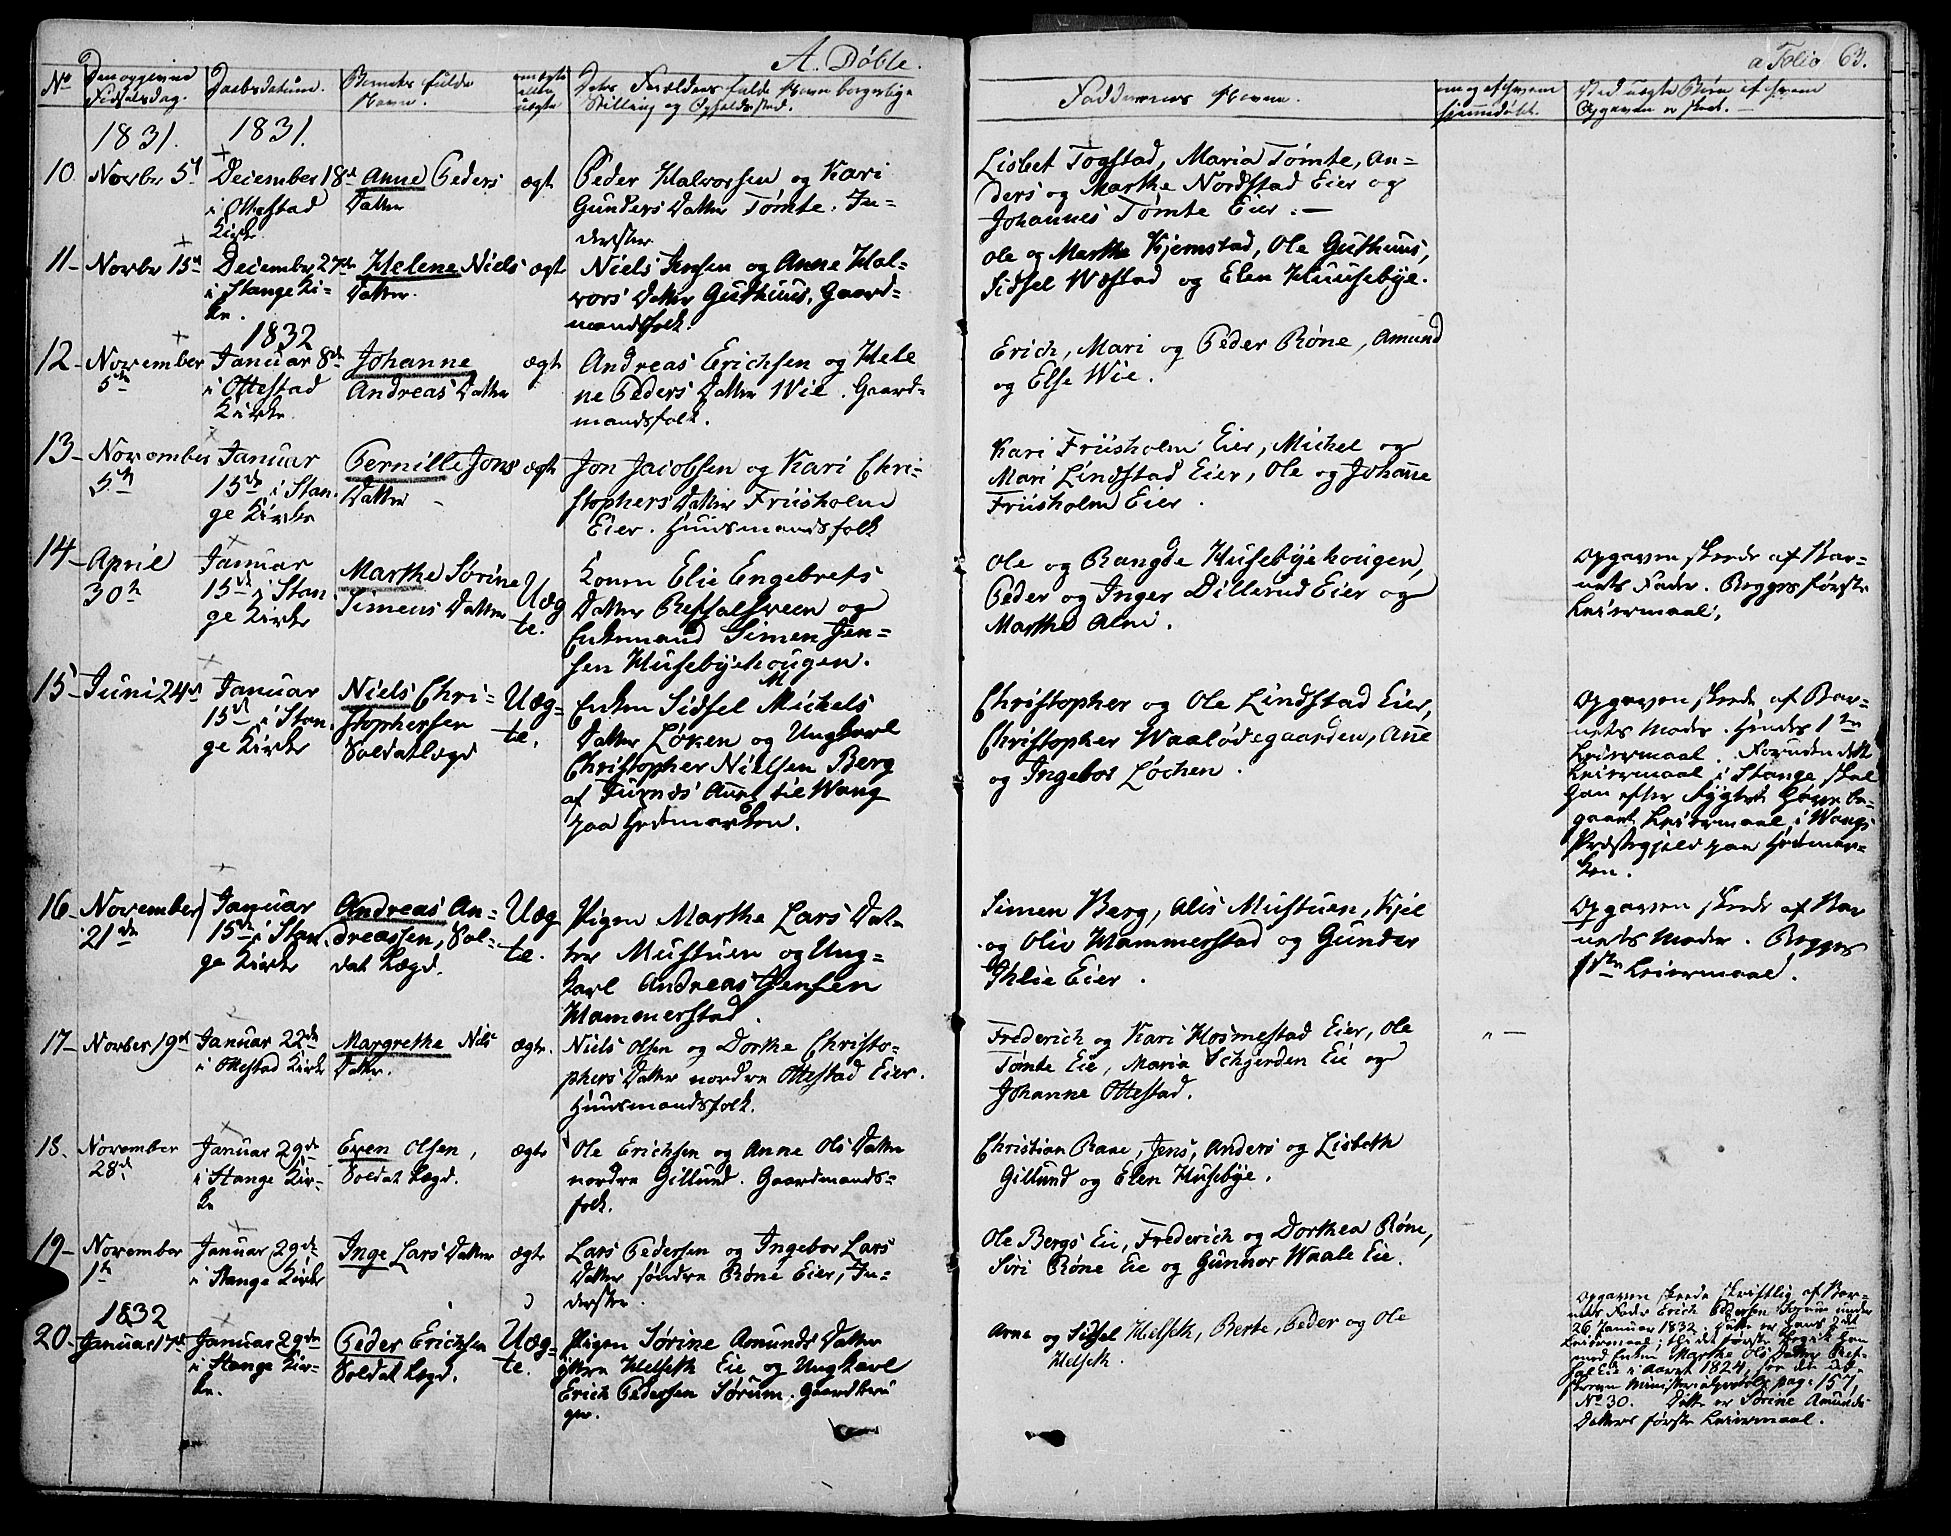 A. Døbte.
a Folio 63.
No
Den opgivne Fødselsdag.
Daabsdatum.
Barnets fulde Navn.
uægte eller ægte
Dets Forældres fulde Navn borgerlige Stilling og Opholdssted.
Faddernes Navne.
om og af hvem hjemmedøbt.
Ved uægte Børn af hvem Opgaven er skeet.
1831.
1831.
10. Novber 5t
December 18d
i Ottestad
Kirke.
Anne Peders
Datter
ægt
Peder Halvorsen og Kari
Gunders Datter Tømte. In-
derster
Lisbet Togstad, Maria Tømte, An-
ders og Marthe Nordstad Eier og
Johannes Tømte Eier.
11- Novbr 15d
December 27de
i Stange Ki-
ke.
Helene Niels
Datter.
ægt
Niels Jensen og Anne Hal-
vors Datter Guthuus, Gaard-
mandsfolk.
Ole og Marthe Kjemstad, Ole Guthuus,
Sidsel Wæstad og Elen Huusebÿe.
1832
12- November
5te
Januar 8de
i Ottestad
Kirke.
Johanne
Andreas Datter
ægt
Andreas Erichsen og Hele
ne Peders Datter Wie. Gaard-
mandsfolk.
Erich, Mari og Peder Røne, Amund
og Else Wie.
13- November
5th
Januar
15de i Stan-
ge Kirke
Pernille Jons
Datter
ægt
Jon Jacobsen og Kari Chri-
stophers Datter Friisholm
Eier. Huusmandsfolk
Kari Friisholm Eier, Michel og
Mari Lindstad Eier, Ole og Johanne
Friisholm Eier.
14- April
30te
Januar
15de i Stan
ge Kirke
Marthe Sørine
Simens Datter
Uæg
te.
Konen Elie Engebrets
Datter Refsalsveen og
Enkemand Simen Jen-
sen Husebÿehougen.
Ole og Rangde Husebÿehougen,
Peder og Inger Dillerud Eier og
Marthe Alvi.
Opgaven skeede af Bar-
nets Fader. Begges første
Leiermaal.
15- Juni 24de
Januar
15d i Stan
ge Kirke
Niels Chri-
stophersen
Soldatlægd
Uæg-
te.
Enken Sidsel Michels
Datter Løken og Ungkarl
Christopher Nielsen Berg
af Furnæs Anex til Wang
paa Hedemarken.
Christopher og Ole Lindstad Eier,
Christopher Waalødegaarden, Ane
og Ingebor Løchen.
Opgaven skeede af Bar-
nets Moder. Hendes 1te
Leiermaal. Foruden dette
Leiermaal i Stange skal
han efter Rygtet have be-
gaaet Leiermaal i Wangs
Præstegjeld paa Hedemar-
ken.
16- November
21de
Januar
15de i Stan
ge Kirke
Andreas An-
dreassen, Sol-
dat Lægd.
Uæg
te.
Pigen Marthe Lars Dat-
ter Mustuen og Ung-
karl Andreas Jensen
Hammerstad.
Simen Berg, Alis Mustuen, Kjel
og Oliv Hammerstad og Gunder
Ihlie Eier.
Opgaven skeede af Bar
nets Moder. Begges
1ste Leiermaal.
17- Novber 19de
Januar 22de
i Ottestad Kirke
Margrethe Niels
Datter.
ægte.
Niels Olsen og Dorthe Christo-
phers Datter nordre Ottestad Eier.
Huusmandsfolk.
Frederich og Kari Hosmestad Eier, Ole
Tømte Eie, Maria Schjerden Eie og
Johanne Ottestad.
18. November
28de
Januar 29de
i Stange Kir-
ke
Even Olsen,
Soldat Lægd.
ægte
Ole Erichsen og Anne Ols Datter
nordre Gillund. Gaardmands-
folk.
Christian Rane, Jens, Anders og Lisbeth
Gillund og Elen Husebÿe.
19- November
1te
Januar 29de
i Stange Kirke
Inge Lars Datter
ægte
Lars Pedersen og Ingebor Lars
Datter søndre Røne Eier, In-
derster.
Ole Bergs Eie, Frederich og Dorthea Røne,
Siri Røne Eie og Gunnor Waale Eie.
1832
20- Januar 17de
Januar 29de
i Stange Kir-
ke.
Peder Erichsen
Soldat Lægd.
Uæg-
te.
Pigen Sørine Amunds Datter
Helseth Eie og Ungkarl
Erich Pedersen Sørum.
Arne og Sidsel Helseth, Berte, Peder og Ole
Helseth.
Opgaven skeede skriftlig af Bar-
nets Fader Erich Pedersen Sørum under
26 Januar 1832. Dette er hans 2det
Leiermaal, thi det første begik han
med Enken Marthe Ols Datter Ref-
sal Eie i Aaret 1824, see den
Ministerialprotokol pag. 157,
No 30. Dette er Sørine Amunds
Datters første Leiermaal.